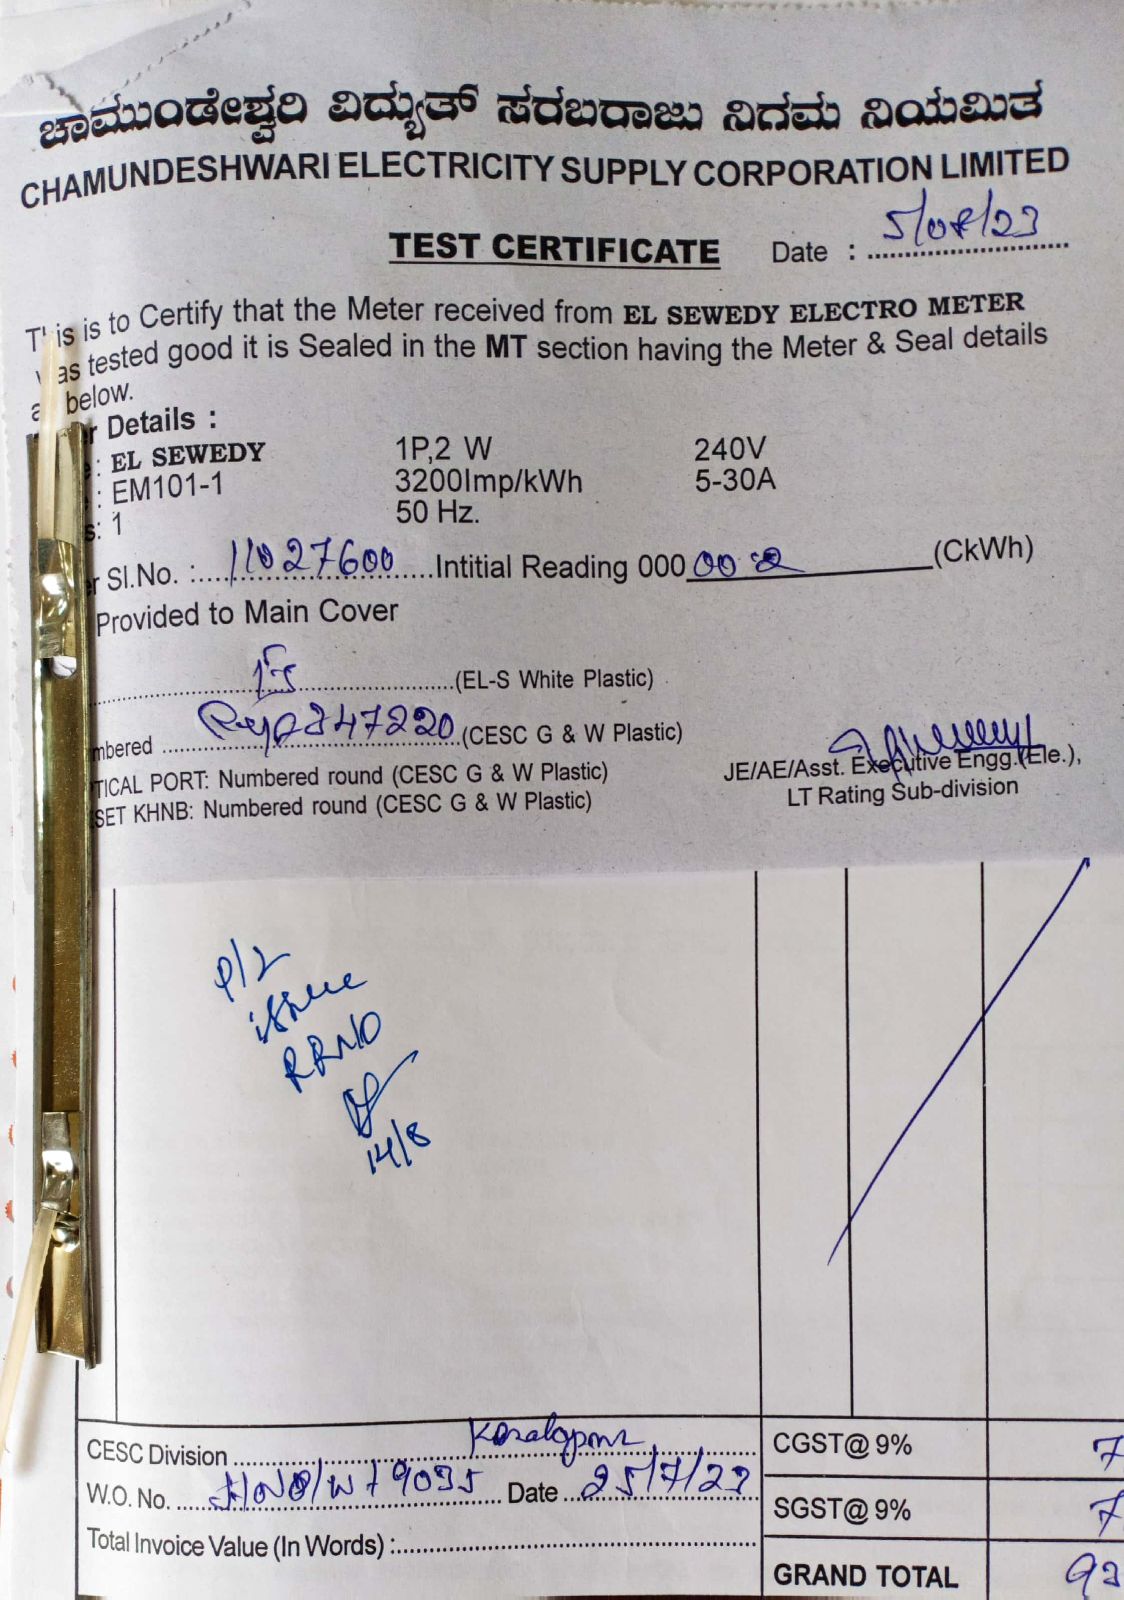 ಚಾಮುಂಡೇಶ್ವರಿ ವಿದ್ಯುತ್ ಸರಬರಾಜು ನಿಗಮ ನಿಯಮಿತ
CHAMUNDESHWARI ELECTRICITY SUPPLY CORPORATION LIMITED
TEST CERTIFICATE Date : 5/08/23
This is to Certify that the Meter received from EL SEWEDY ELECTRO METER
was tested good it is Sealed in the MT section having the Meter & Seal details
below.
r Details :
: EL SEWEDY 1P,2 W 240V
: EM101-1 3200Imp/kWh 5-30A
s: 1 50 Hz.
r Sl.No. : 11027600 Intitial Reading 000 00 2 (CkWh)
Provided to Main Cover
(EL-S White Plastic)
mbered 347220 (CESC G & W Plastic)
TICAL PORT: Numbered round (CESC G & W Plastic)
SET KHNB: Numbered round (CESC G & W Plastic)
JE/AE/Asst. Executive Engg.(Ele.),
LT Rating Sub-division
P/2
issue
RRNO
14/8
CESC Division
W.O. No. Date 25/7/23
Total Invoice Value (In Words) :
CGST@ 9% 7
SGST@ 9% 7
GRAND TOTAL 93